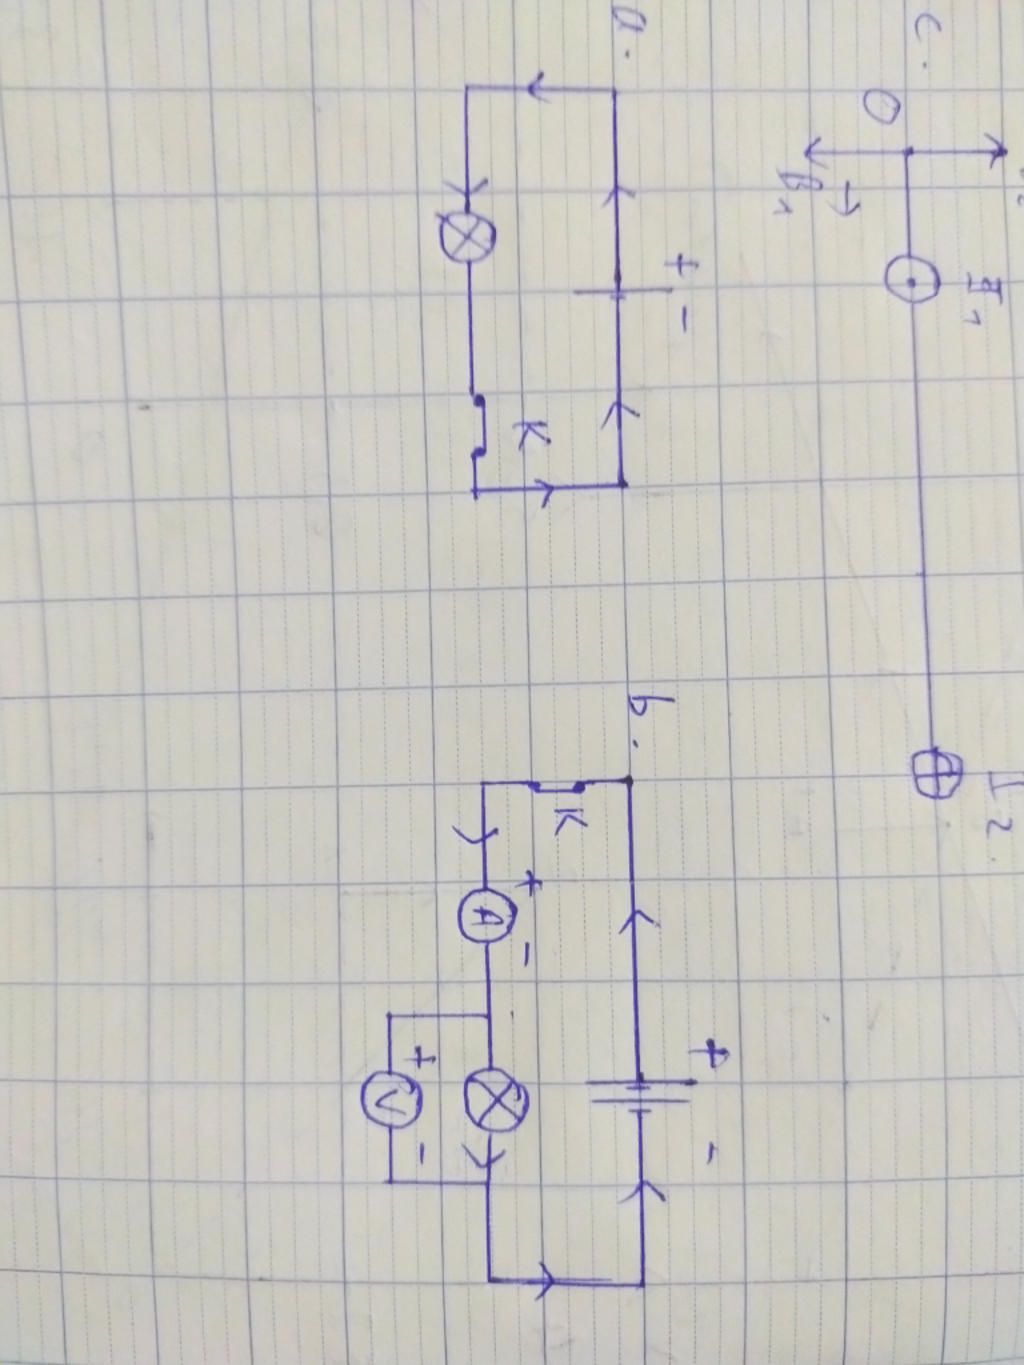 c.
O
B₁
I₁
I₂.
a.
+ -
K
b.
+ -
K
+ -
A
+ -
V